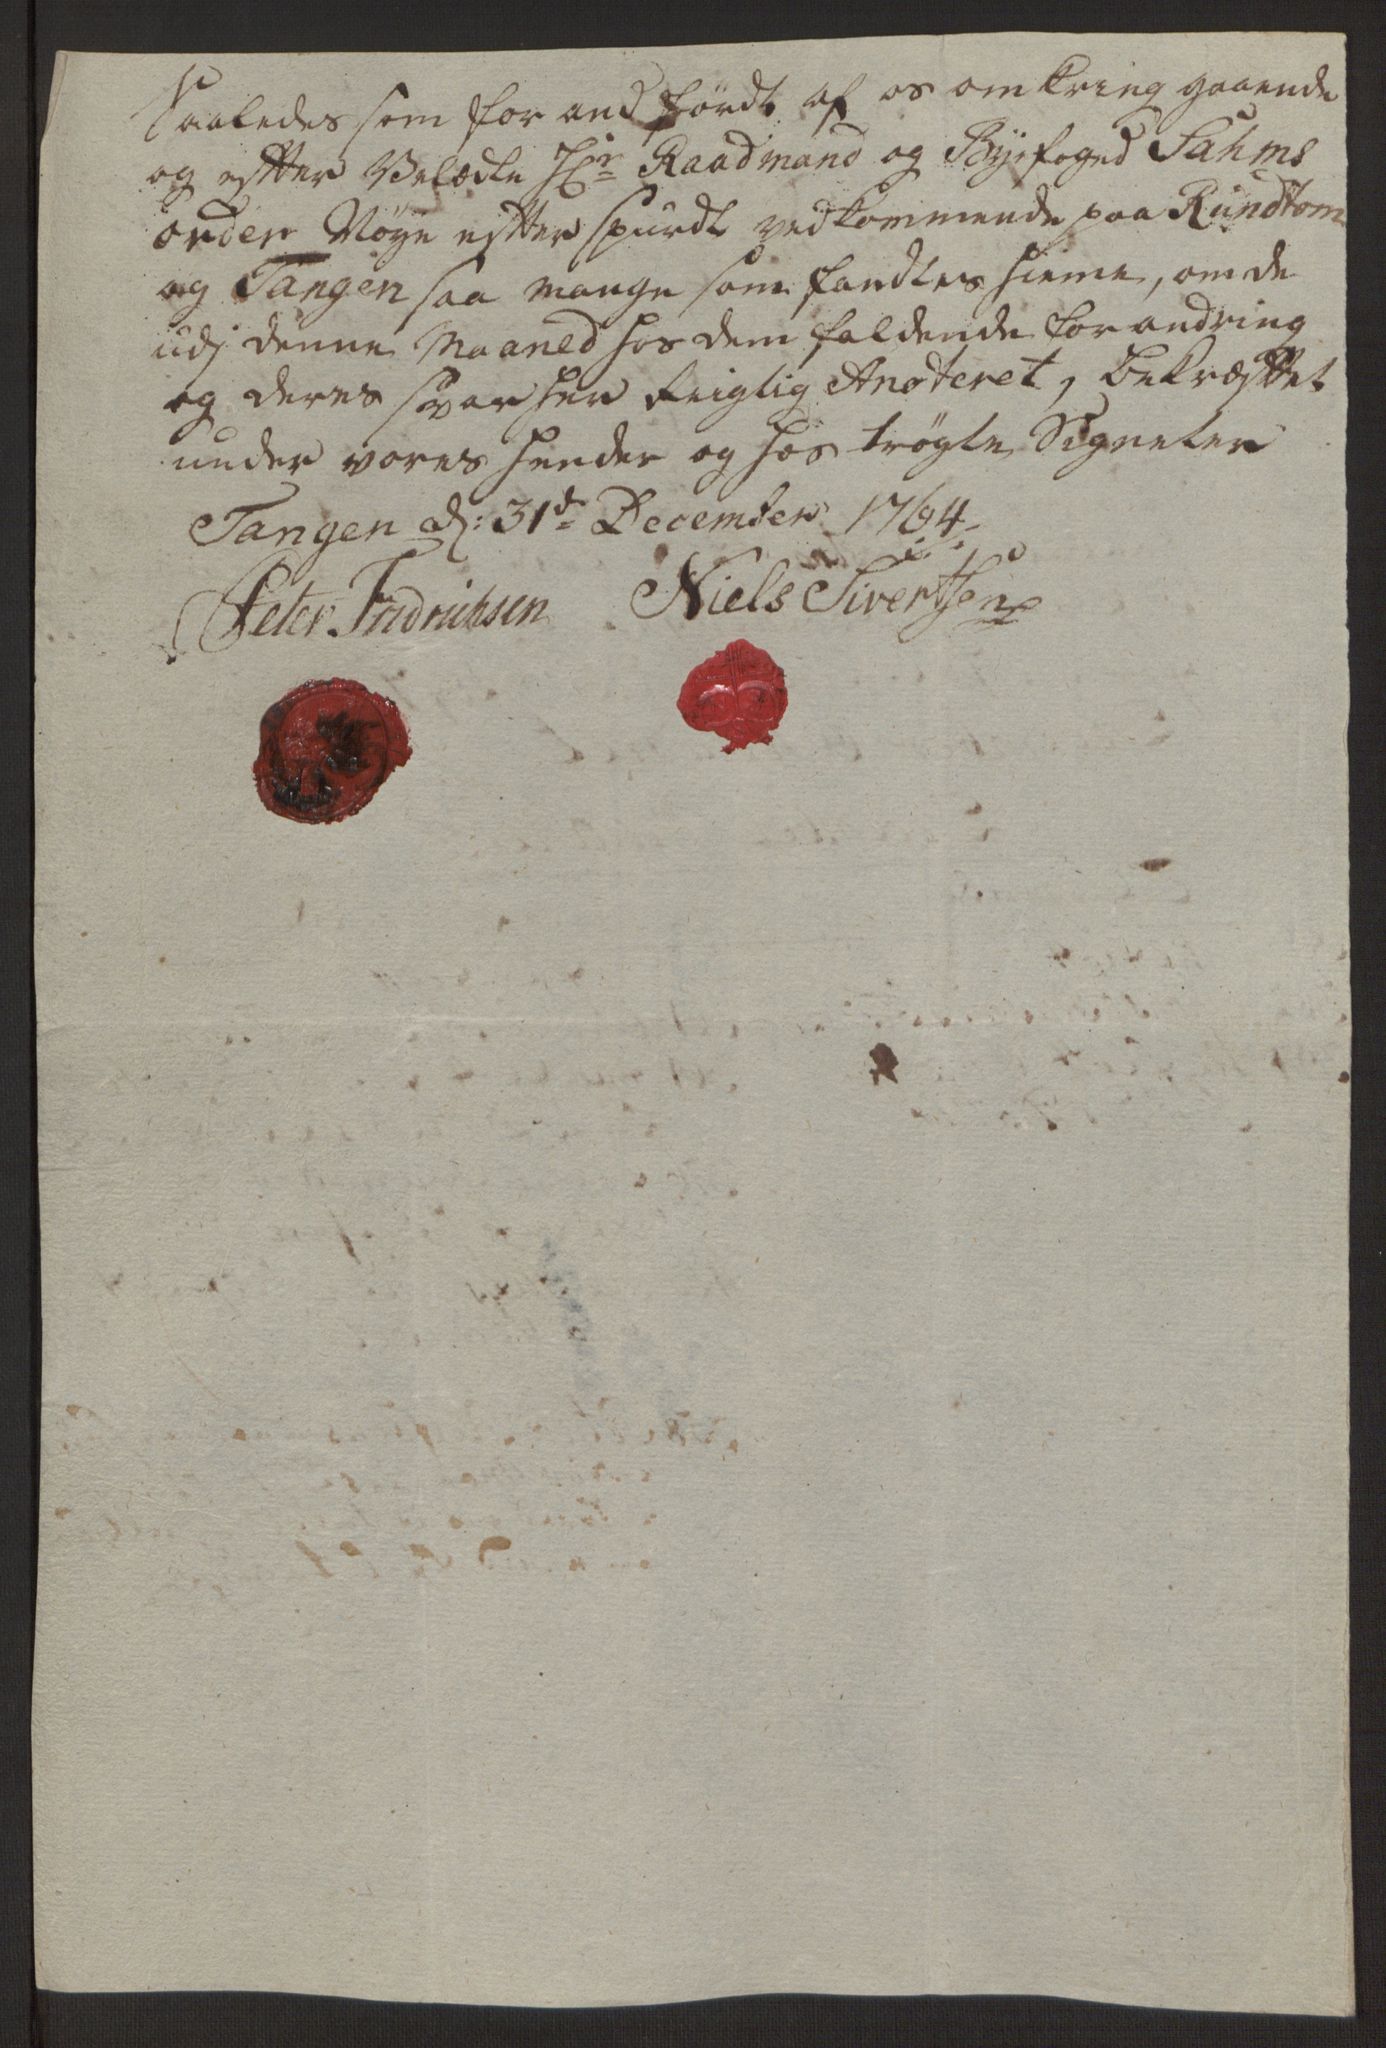 Saaledes som for and førdt af os omkring gaaende
og efter Velædle Hr Raadmand og Byefoged Sahms
order Nøye efter spurdt vedkommende paa Rundtom
og Tangen saa mange som fandtes hieme, om de
udj denne Maaned hos dem faldende forandring
og deres svar her rigtig Anoteret, bekræfftet
under vores hender og hos trøgte Signeter
Tangen d: 31d December 1764
Peter Fridrichsen Niels Sivertsen